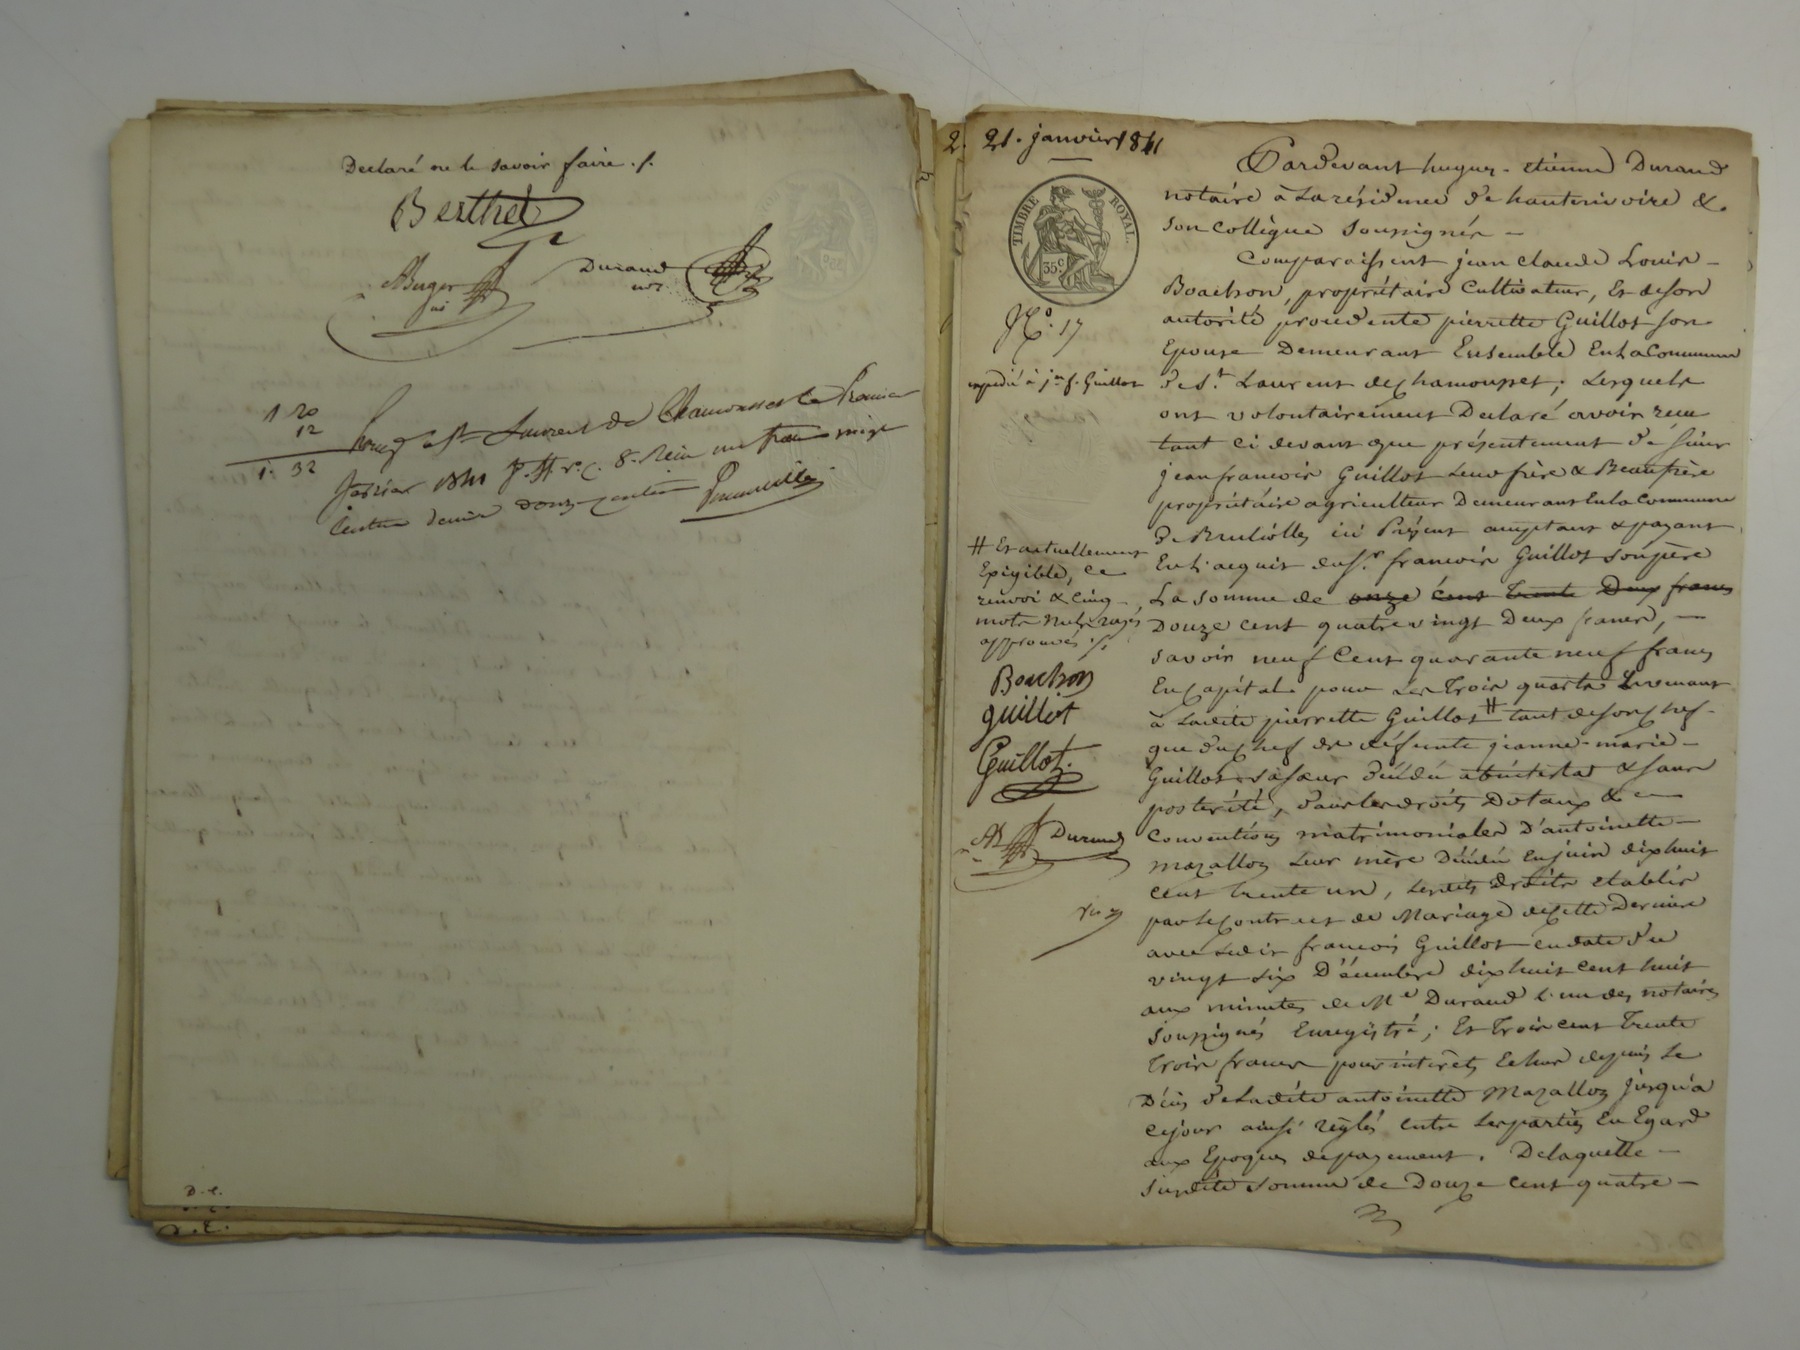 Declaré ne le savoir faire ./.
Berthet
ABuger
Durand
nre
1 20
12
1. 32
Enreg. à St Laurent de Chamousset le
Janvier 1841 f. 44 r. c. 8. Reçu un franc vingt
centimes decime douze centimes
D. C.
2. 21. janvier 1841
TIMBRE ROYAL.
35 c
No. 17
expedié à jn f. Guillot
# Et actuellement
Exigible, ce
renvoi & cinq
mots nuls rayés
approuvés ./.
Bouchon
guillot
Guillot.
AB Durand
Pardevant hugues-etienne Durand
notaire à La résidence de hauterivoire &
son Collègue Soussignés —
Comparaissent jean claude Louis —
Bouchon, propriétaire Cultivateur, Et de son
autorité procédente pierrette Guillot son
Epouse Demeurant Ensemble En La Commune
de St. Laurent de Chamousset; Lesquels
ont volontairement Declaré avoir reçu
tant ci devant que présentement de sieur
jean francois Guillot Leur frère & Beaufrère
propriétaire agriculteur Demeurant En la Commune
de Brullioles ici Présent acceptant & payant
En L'acquit du Sr. francois Guillot son père
La somme de onze cent trente Deux francs
Douze cent quatre vingt Deux francs, —
savoir neuf Cent quarante neuf francs
En Capital pour Les trois quarts Revenant
à Ladite pierrette Guillot # tant de son chef
que du chef de défunte jeanne-marie —
Guillot sa sœur décédée abintestat & sans
postérité, dans les droits Dotaux & —
Conventions matrimoniales D'antoinette —
mazalloz Leur mère Décédée En juin dix huit
cent trente un, Lesdits droits etablis
par le Contract de Mariage de Cette Derniere
avec Ledit francois Guillot en date du
vingt six Décembre dix huit cent huit
aux minutes de Me Durand l'un des notaires
soussignés Enregistré; Et trois cent trente
trois francs pour intérêts Echus depuis Le
Décès de Ladite antoinette Mazalloz jusqu'a
ce jour ainsi réglés entre Les parties En Egard
aux Epoques de payement. De laquelle —
susdite somme de Douze cent quatre —